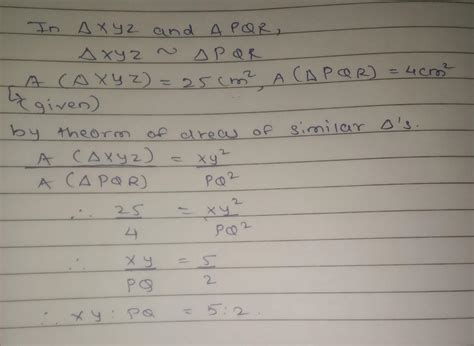 In Δ XYZ and Δ PQR,
Δ XYZ ~ Δ PQR
A (Δ XYZ) = 25 cm², A (Δ PQR) = 4cm²
↳ (given)
by theorm of areas of similar Δ's.
A (Δ XYZ) / A (Δ PQR) = XY² / PQ²
∴ 25 / 4 = XY² / PQ²
∴ XY / PQ = 5 / 2
∴ XY : PQ = 5 : 2.